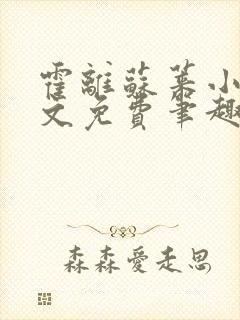 霍離蘇茶小
文免費筆趣
森森愛走思